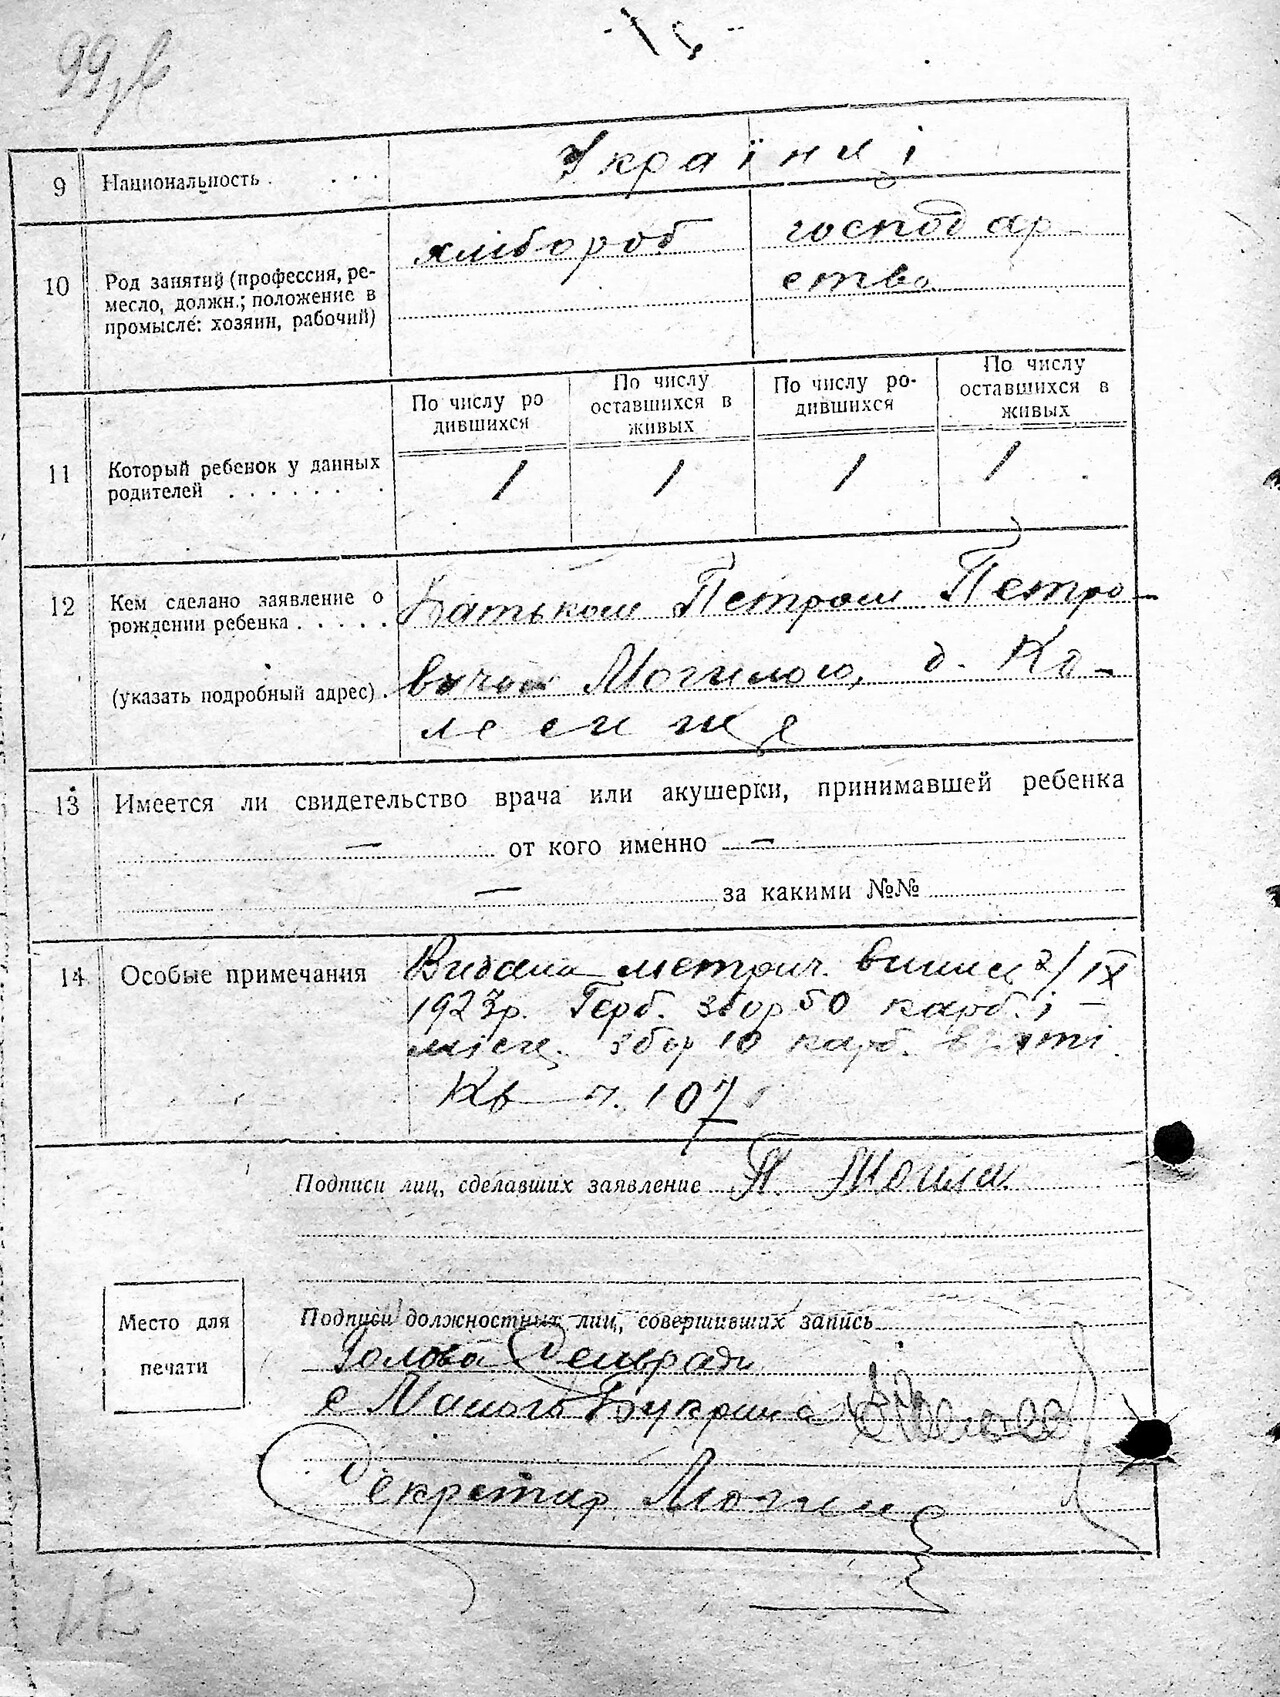 99
9 Национальность . . . . Українці
10 Род занятий (профессия, ре-
месло, должн.; положение в
промысле: хозяин, рабочий)
хлібороб
господар-
ство
11 Который ребенок у данных
родителей . . . . . . .
По числу ро
дившихся
По числу
оставшихся в
живых
По числу ро-
дившихся
По числу
оставшихся в
живых
1 1 1 1
12 Кем сделано заявление о
рождении ребенка . . . . .
(указать подробный адрес) .
Батьком Петром Петро-
вичом Могилою, д. Ко-
лесище
13 Имеется ли свидетельство врача или акушерки, принимавшей ребенка
— от кого именно —
— за какими №№
14 Особые примечания
Видана метрич. випис 2/IX
1923р. Герб. збор 50 карб. і
місц. збор 10 карб. взяті.
Кв ч. 107
Подписи лиц, сделавших заявление П. Могила
Место для
печати
Подписи должностных лиц, совершивших запись
Голова Сельради
с Малого Букрина
Секретар